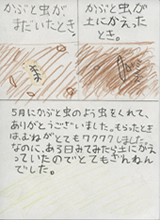 かぶと虫が
まだいたとき。
かぶと虫が
土にかえった
とき。
5月にかぶと虫のよう虫をくれて、
ありがとうございました。もらったとき
は、むねがとてもワクワクしました。
なのに、ある日みてみたら土にかえ
っていたのでとてもざんねん
でした。